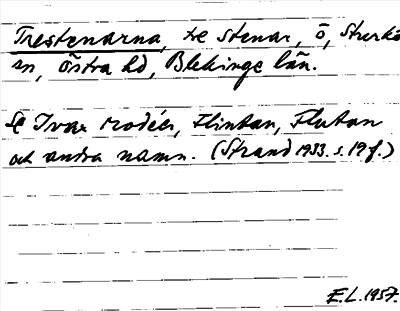 Trestenarna, tre stenar, ö, Sturkö
sn, östra hd, Blekinge län.
Se Ivar Modéer, Flintan, Flutan
och andra namn. (Strand 1933. s. 19 f.)
E.L. 1957.